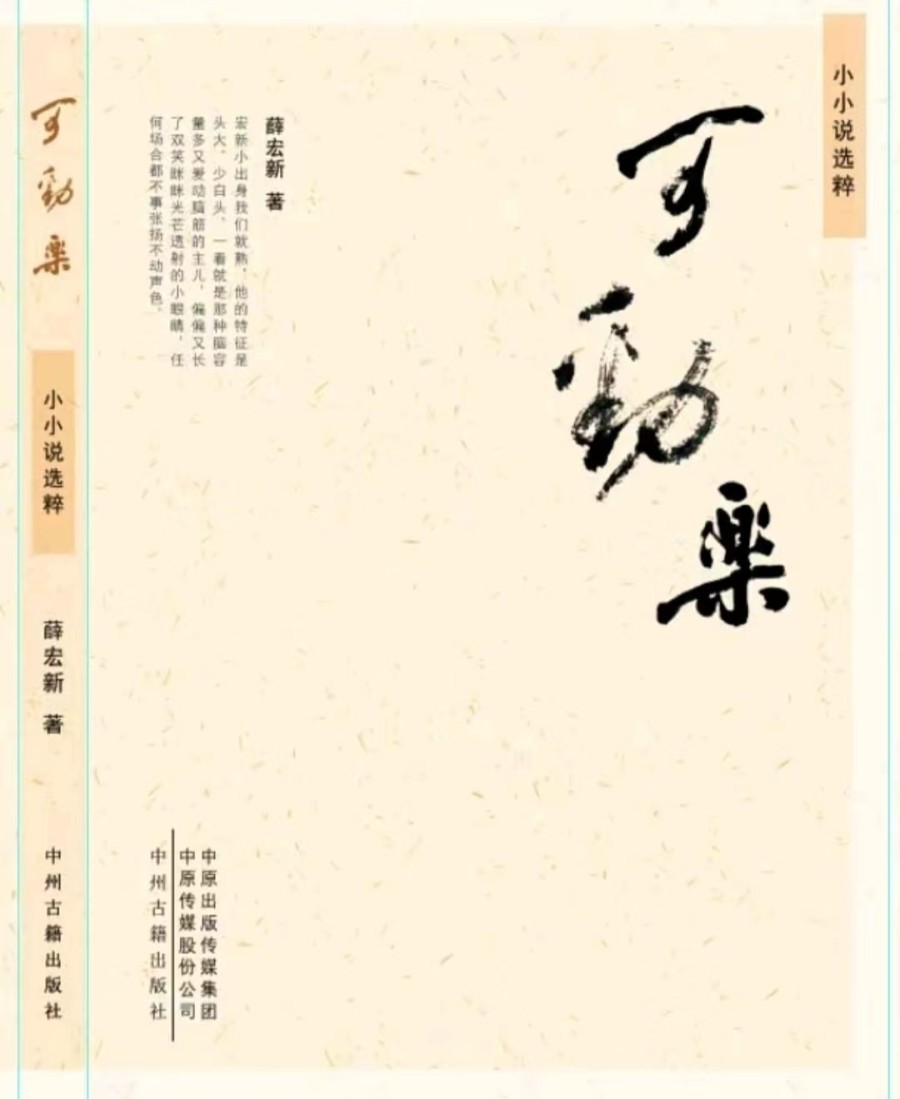 可劲乐
小小说选粹
薛宏新 著
中州古籍出版社
小小说选粹
可劲乐
薛宏新 著
宏新小出身我们就熟，他的特征是
头大、少白头，一看就是那种脑容
量多又爱动脑筋的主儿，偏偏又长
了双笑眯眯光芒透射的小眼睛，任
何场合都不事张扬不动声色。
中原出版传媒集团
中原传媒股份公司
中州古籍出版社